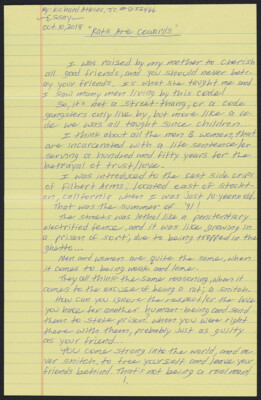 By: Richard
Essay
Oct. 10, 2018 "Rats Are Cowards"
I was raised by my mother to cherish
all good friends, and you should never betr-
ay your friends. It's what she taught me and
I saw many men living by this code!
So, it's not a street thang, or a code
gangsters only live by, but more like a co-
de we was all taught since children...
I think about all the men & women, that
are incarcerated with a life sentence/or
serving a hundred and fifty years for the
betrayal of trust/love.
I was introduced to the east side crips
of Filbert Arms, located east of Stockt-
on, California when I was just 10 years old.
That was the summer of '91!
The streets was lethal like a penitentiary
electrified fence, and it was like growing in
a prison of sort, due to being trapped in the
ghetto...
Men and women are quite the same, when
it comes to being weak and loner.
They all think the same reasoning, when it
comes to the excuse of being a rat, a snitch.
How can you ignore the respect/or the love
you have for another human-being and send
them to state prison when you were right
there with them, probably just as guilty
as your friend...
You come strong into the world, and ne-
ver snitch, to free yourself and leave your
friends behind. That's not being a real man
1.